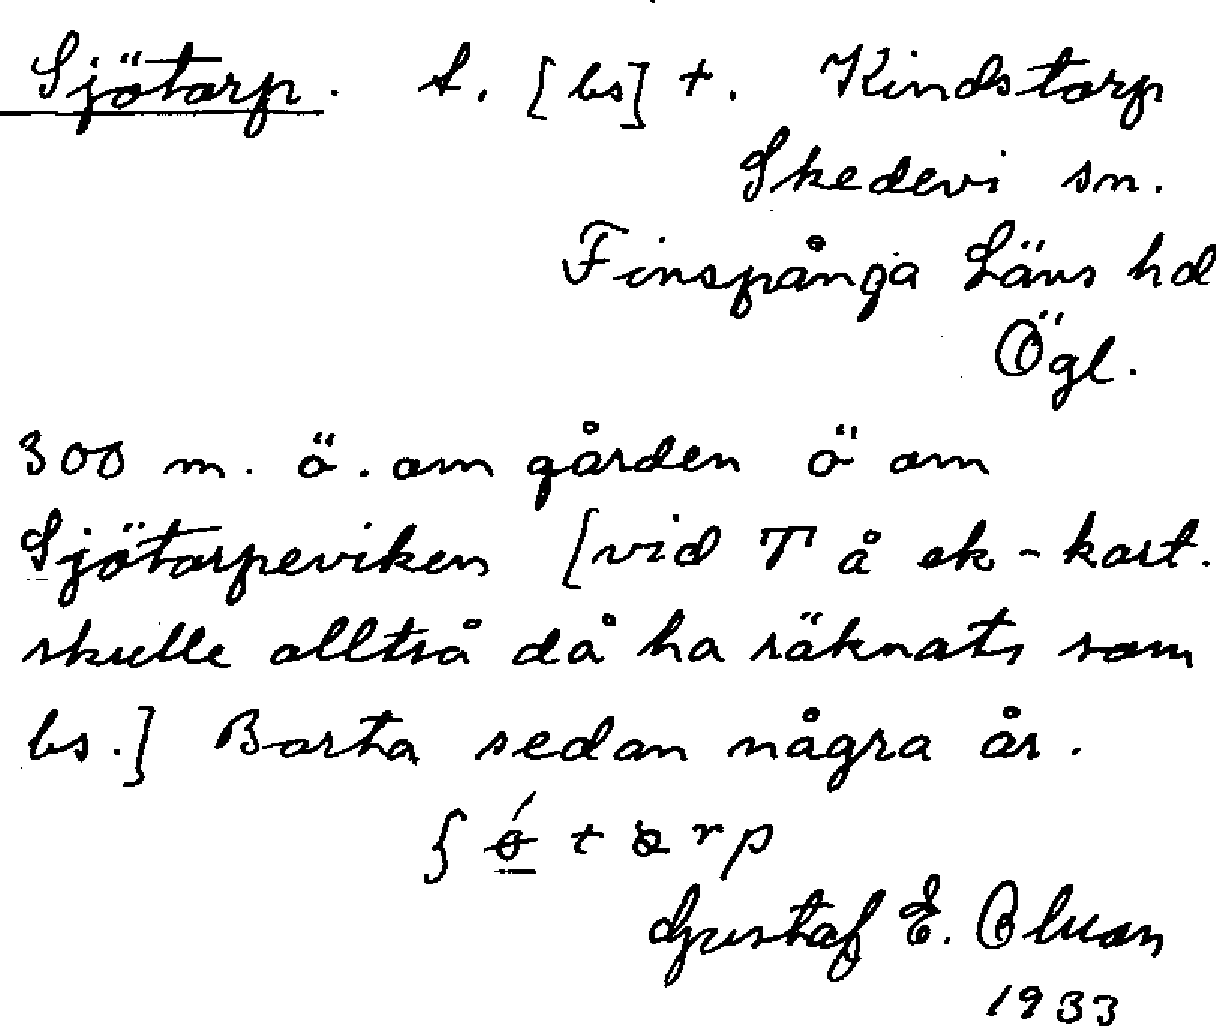 Sjötarp. t. [bs] +. Kindstorp
Skedevi sn.
Finspånga Läns hd
Ögl.
300 m. ö. om gården ö om
Sjötorpeviken [vid T å ek-kart.
skulle alltså då ha räknats som
bs.] Borta sedan några år.
Gustaf E. Bluan
1933